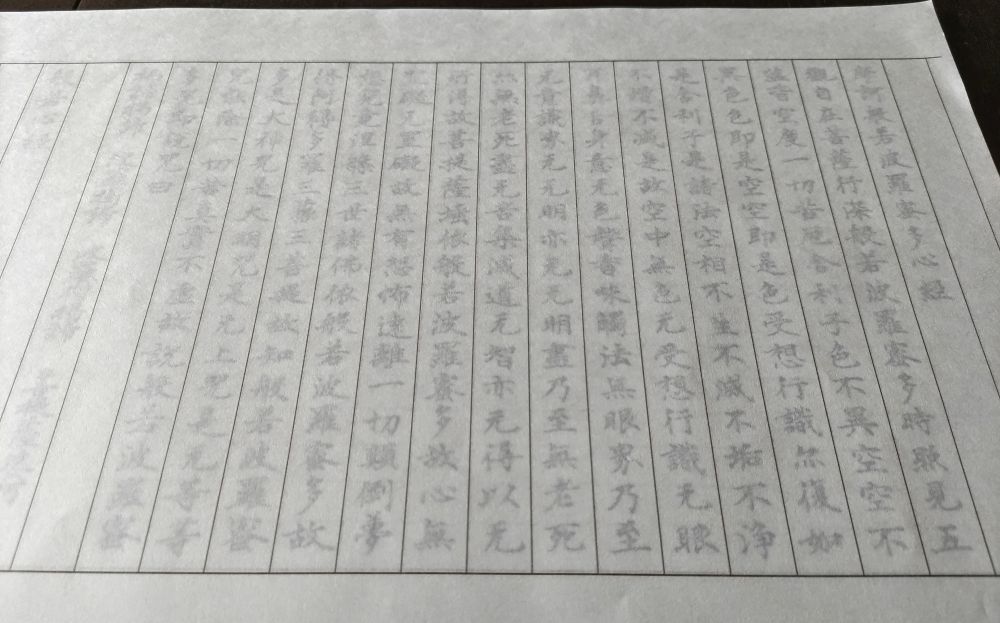 摩訶般若波羅蜜多心經
觀自在菩薩行深般若波羅蜜多時照見五
蘊皆空度一切苦厄舍利子色不異空空不
異色色即是空空即是色受想行識亦復如
是舍利子是諸法空相不生不滅不垢不淨
不增不減是故空中無色无受想行識无眼
耳鼻舌身意无色聲香味觸法無眼界乃至
无意識界无无明亦无无明盡乃至無老死
亦無老死盡无苦集滅道无智亦无得以无
所得故菩提薩埵依般若波羅蜜多故心無
罣礙无罣礙故無有恐怖遠離一切顛倒夢
想究竟涅槃三世諸佛依般若波羅蜜多故
得阿耨多羅三藐三菩提故知般若波羅蜜
多是大神咒是大明咒是无上咒是无等等
咒能除一切苦真實不虛故說般若波羅蜜
多咒即說咒曰
般若心經